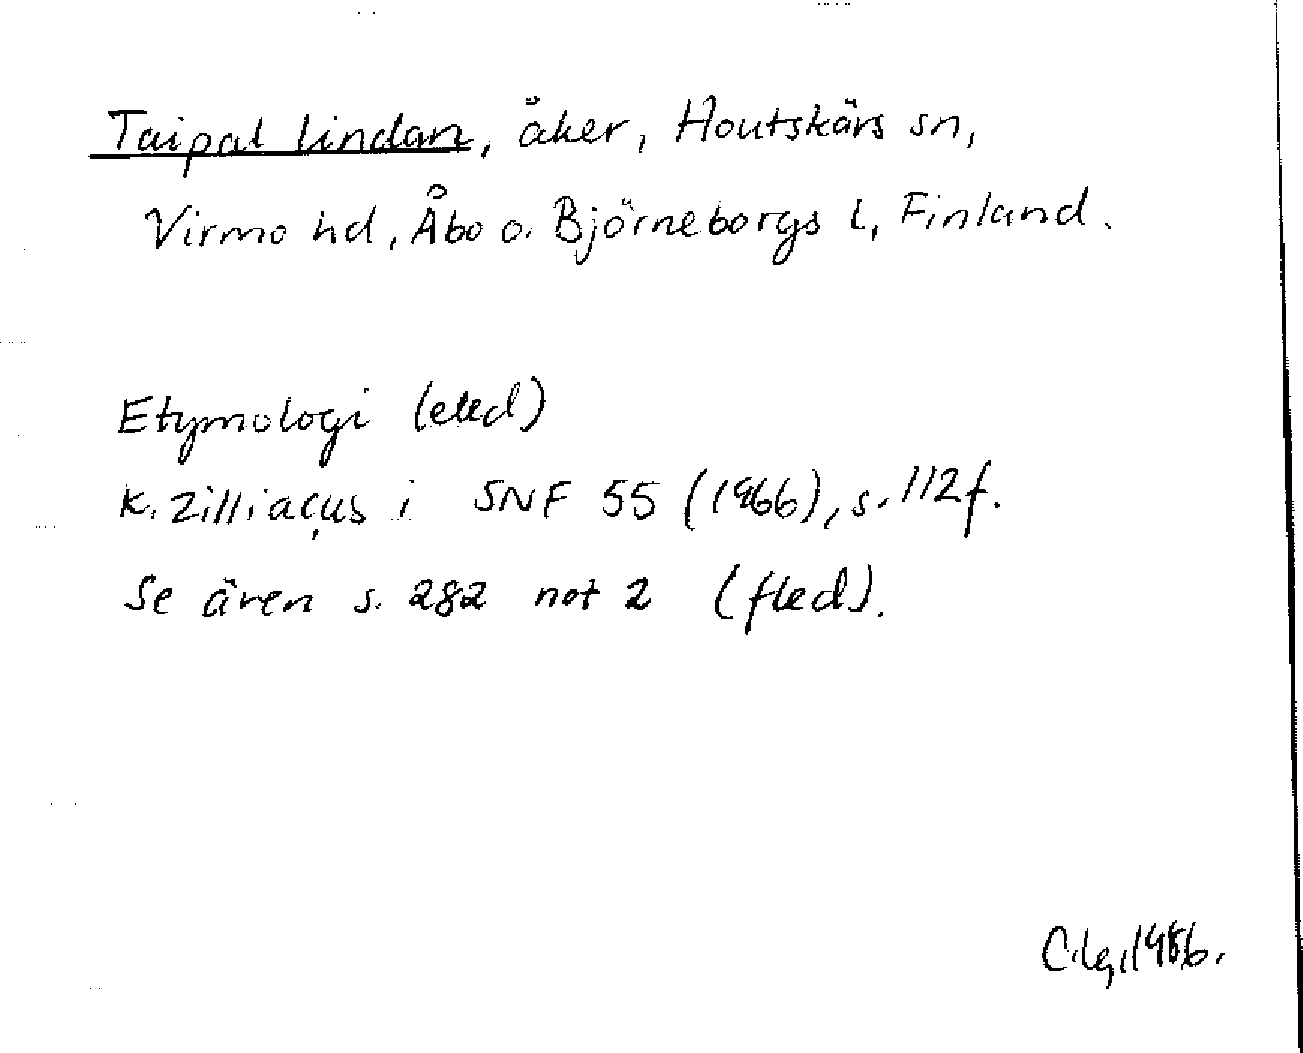 Taipal lindan, åker, Houtskärs sn,
Virmo hd, Åbo o. Björneborgs l, Finland.
Etymologi (eled)
K. Zilliacus i SNF 55 (1966), s. 112f.
Se även s. 282 not 2 (fled).
C.lg, 1986.